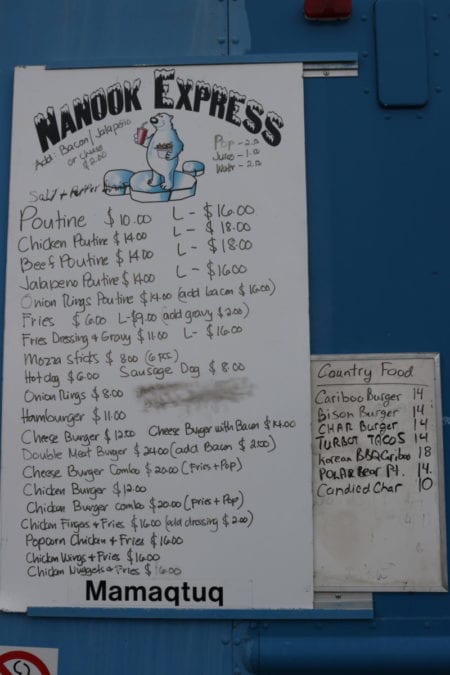 NANOOK EXPRESS
Add: Bacon/Jalapeno
or cheese
$2.00
Pop - 2.00
Juice - 1.00
Water - 2.00
Poutine $10.00 L - $16.00
Chicken Poutine $14.00 L - $18.00
Beef Poutine $14.00 L - $18.00
Jalapeno Poutine $14.00 L - $16.00
Onion Rings Poutine $14.00 (add bacon $16.00)
Fries $6.00 L-$9.00 (add gravy $2.00)
Fries Dressing & Gravy $11.00 L- $16.00
Mozza Sticks $8.00 (6 pcs)
Hot dog $6.00 Sausage Dog $8.00
Onion Rings $8.00
Hambourger $11.00
Chese Burger $12.50 Cheese Burger with Bacon $14.00
Double Meat Burger $24.00 (add Bacon $2.00)
Cheese Burger Combo $20.00 (Fries + Pop)
Chicken Burger $12.00
Chicken Burger combo $20.00 (Fries + Pop)
Chicken Fingers & Fries $16.00 (add dressing $2.00)
Popcorn Chicken & Fries $16.00
Chicken Wings & Fries $16.00
Chicken Nuggets & Fries $16.00
Mamaqtuq
Country Food
Cariboo Burger 14
Bison Burger 14
CHAR Burger 14
TURBOT TACOS 14
Korean BBQ Cariboo 18
POLAR Bear Pt. 14.
Candied Char 10